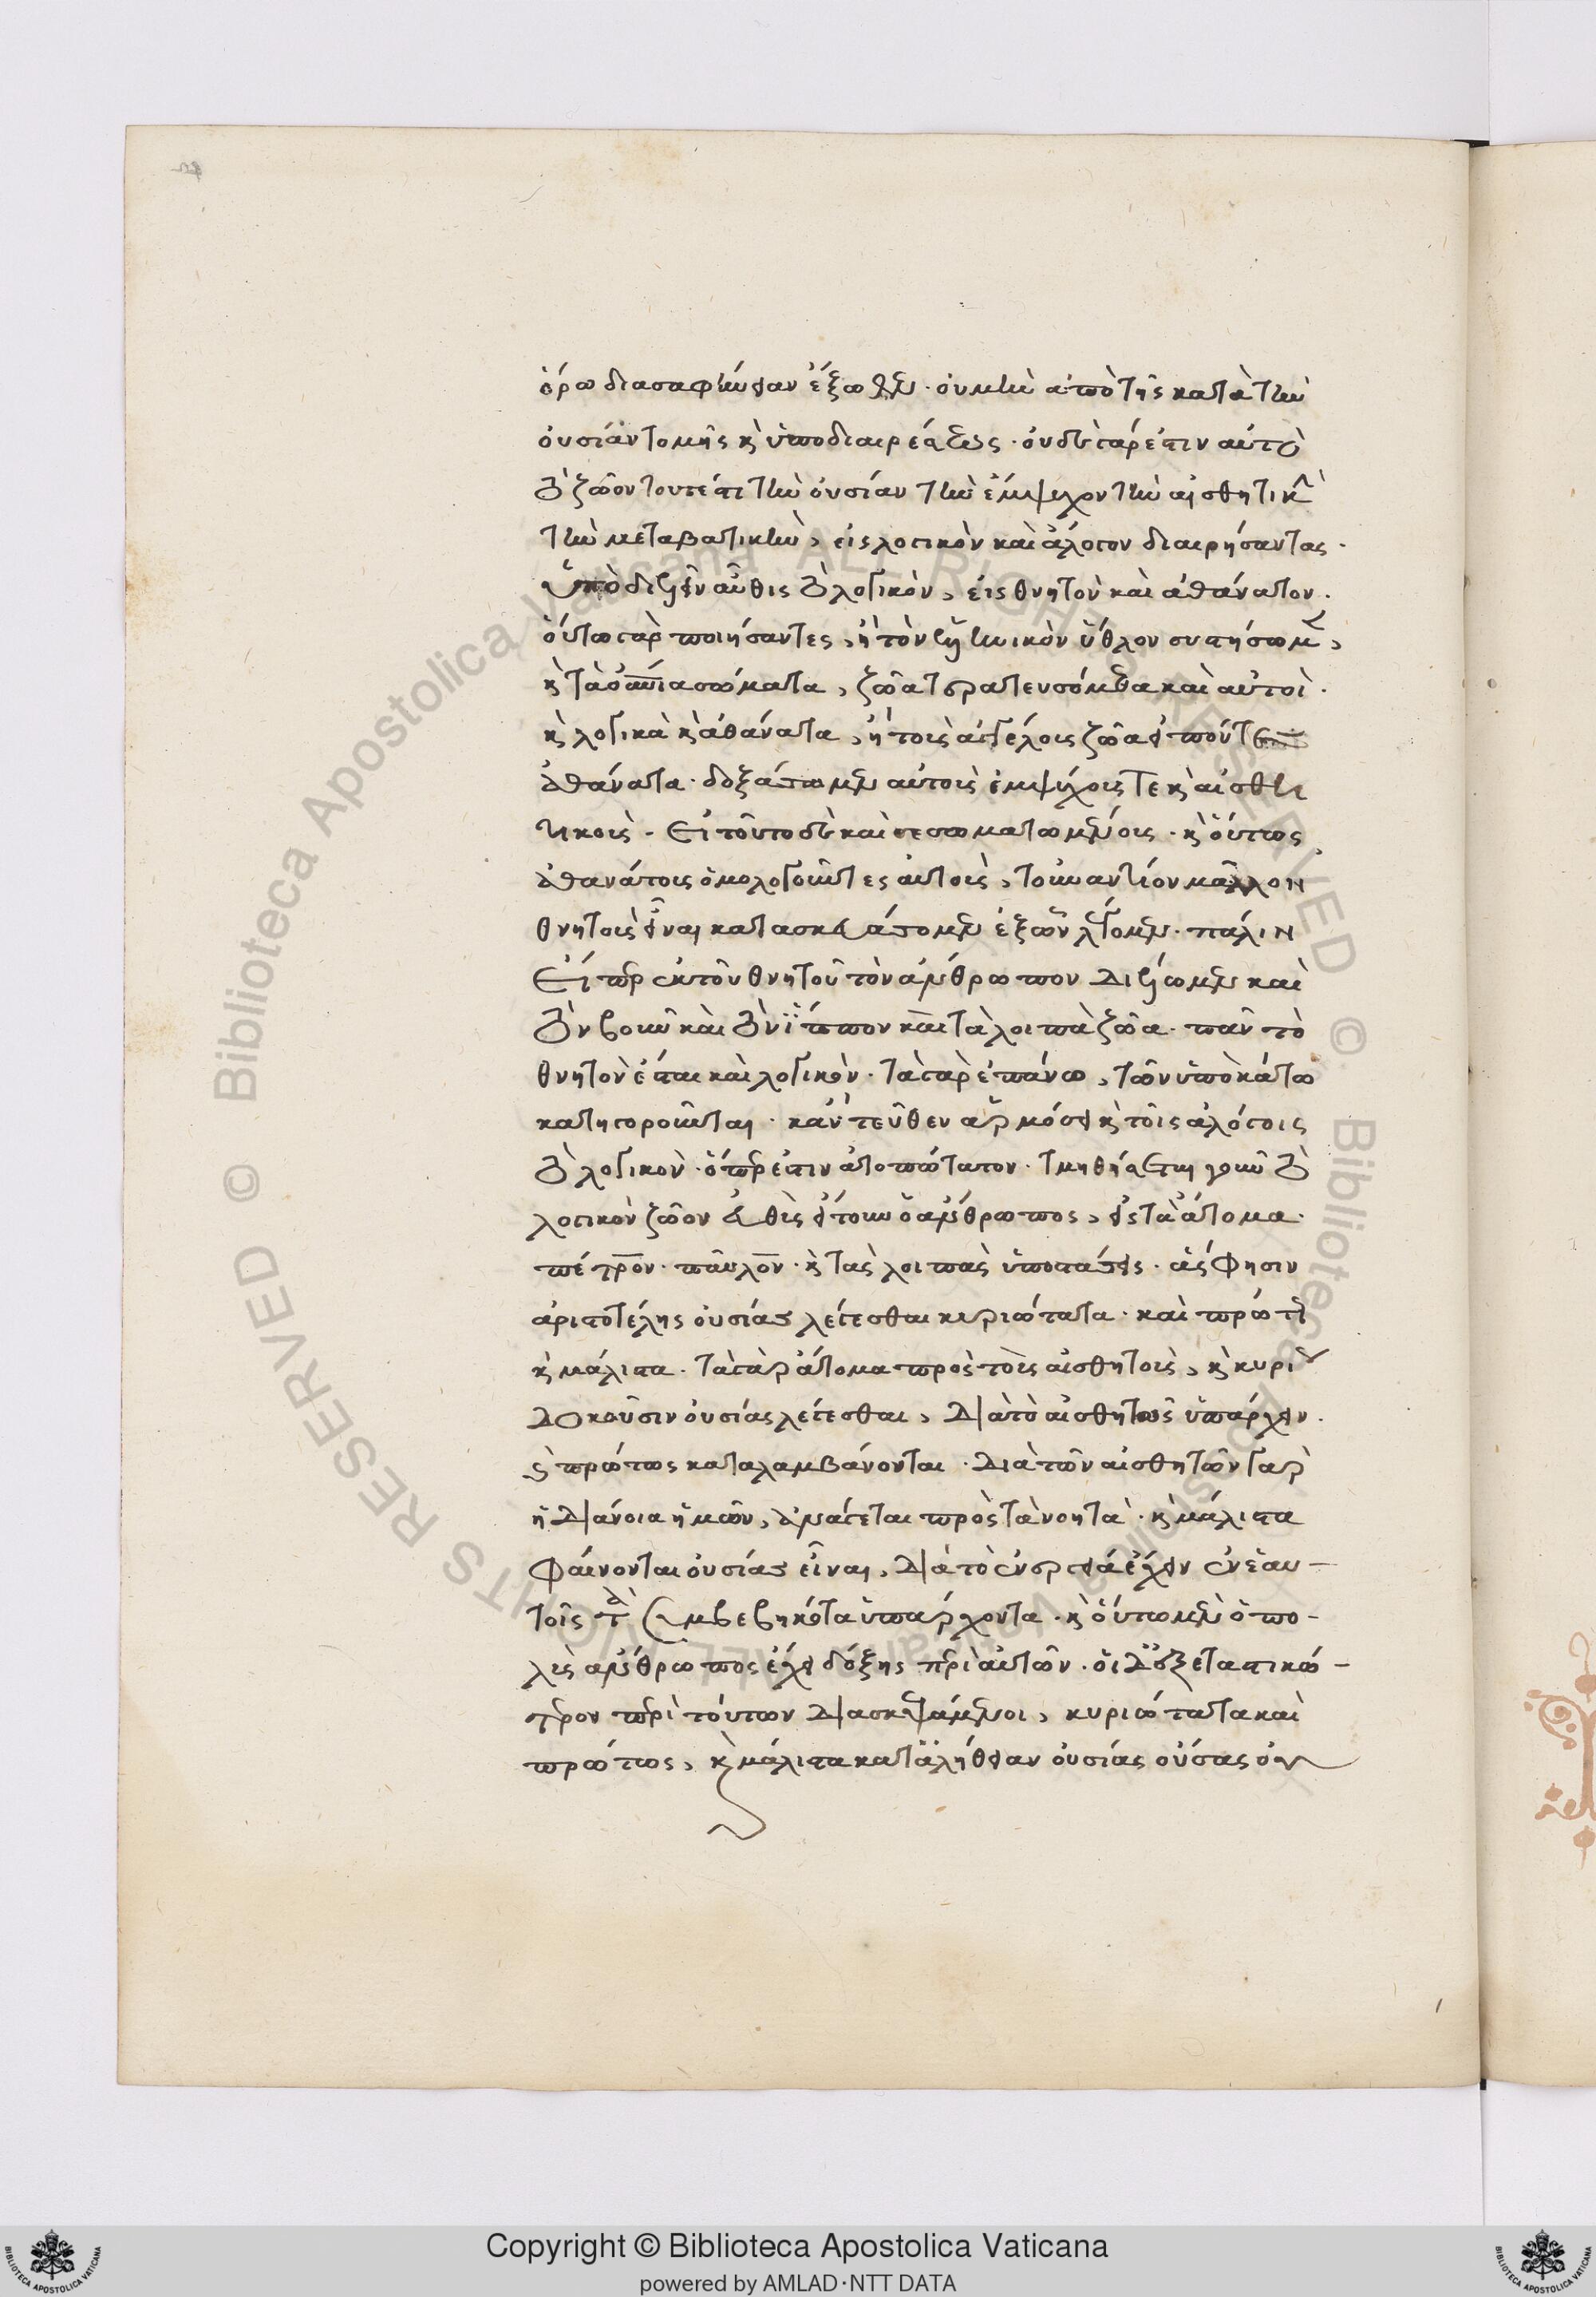 ὅρω διασαφήνειαν ἔξωθεν. οὐ μὴν ἀπὸ τῆς κατὰ τὴν
οὐσίαν τομῆς κ ὑποδιαιρέσεως. οὐδὲ γάρ ἐστιν αὐτὸ
τὸ ζῶον τουτέστι τὴν οὐσίαν τὴν ἔμψυχον τὴν αἰσθητικὴ
τὴν μεταβατικὴν, εἰς λογικὸν καὶ ἄλογον διαιρήσαντας.
αὖθις τὸ λογικὸν, εἰς θνητὸν καὶ ἀθάνατον.
οὕτω γὰρ ποιήσαντες, ἢ τὸν ὕθλον συστήσωμεν,
κ τὰ οὐράνια σώματα, ζῶα τερατευσόμεθα καὶ αὐτοί.
κ λογικὰ κ ἀθάνατα, ἢ τοῖς ἀγγέλοις ζῶα εἰπόντες
ἀθάνατα. δοξάσομεν αὐτοὺς ἐμψύχοις τε κ αἰσθη
τικοῖς. εἰ τοῦτο δὲ καὶ σεσωματωμένοις. κ οὕτως
ἀθανάτοις ὁμολογοῦντες αὐτοῖς, τοὐναντίον μᾶλλον
θνητοῖς εἶναι κατασκευάσομεν ἐξ ὧν λέγομεν. πάλιν
εἴπερ ἐκ τοῦ θνητοῦ τὸν ἄνθρωπον διέλωμεν καὶ
τὸν βοῦν καὶ τὸν ἵππον καὶ τὰ λοιπὰ ζῶα. πᾶν τὸ
θνητὸν ἔσται καὶ λογικόν. τὰ γὰρ ἐπάνω, τῶν ὑποκάτω
κατηγοροῦνται. κἀντεῦθεν ἁρμόσει κ τοῖς ἀλόγοις
τὸ λογικὸν. ὅπερ ἐστὶν ἀτοπώτατον. τμηθήσεται γοῦν τὸ
λογικὸν ζῶον εὐθὺς ἤτουν ὁ ἄνθρωπος, εἰς τὰ ἄτομα.
πέτρον. παῦλον. κ τὰς λοιπὰς ὑποστάσεις. ἃς φησιν
ἀριστοτέλης οὐσίας λέγεσθαι κυριώτατα. καὶ πρώτως
κ μάλιστα. τὰ γὰρ ἄτομα πρὸς τοῖς αἰσθητοῖς, κ κυρίως
δοκοῦσιν οὐσίας λέγεσθαι, διὰ τὸ αἰσθητῶς ὑπάρχειν.
κ πρώτως καταλαμβάνονται. διὰ τῶν αἰσθητῶν γὰρ
ἡ διάνοια ἡμῶν, ἀνάγεται πρὸς τὰ νοητὰ. κ μάλιστα
φαίνονται οὐσίας εἶναι, διὰ τὸ ἐνεργείᾳ ἔχειν ἐν ἑαυ-
τοῖς τὰ συμβεβηκότα ὑπάρχοντα. κ οὕτω μὲν ὁ πο-
λὺς ἄνθρωπος ἔχει δόξης περὶ αὐτῶν. οἱ δ' ἐξεταστικώ-
τερον περὶ τούτων διασκεψάμενοι, κυριώτατα καὶ
πρώτως, κ μάλιστα κατ' ἀλήθειαν οὐσίας οὔσας